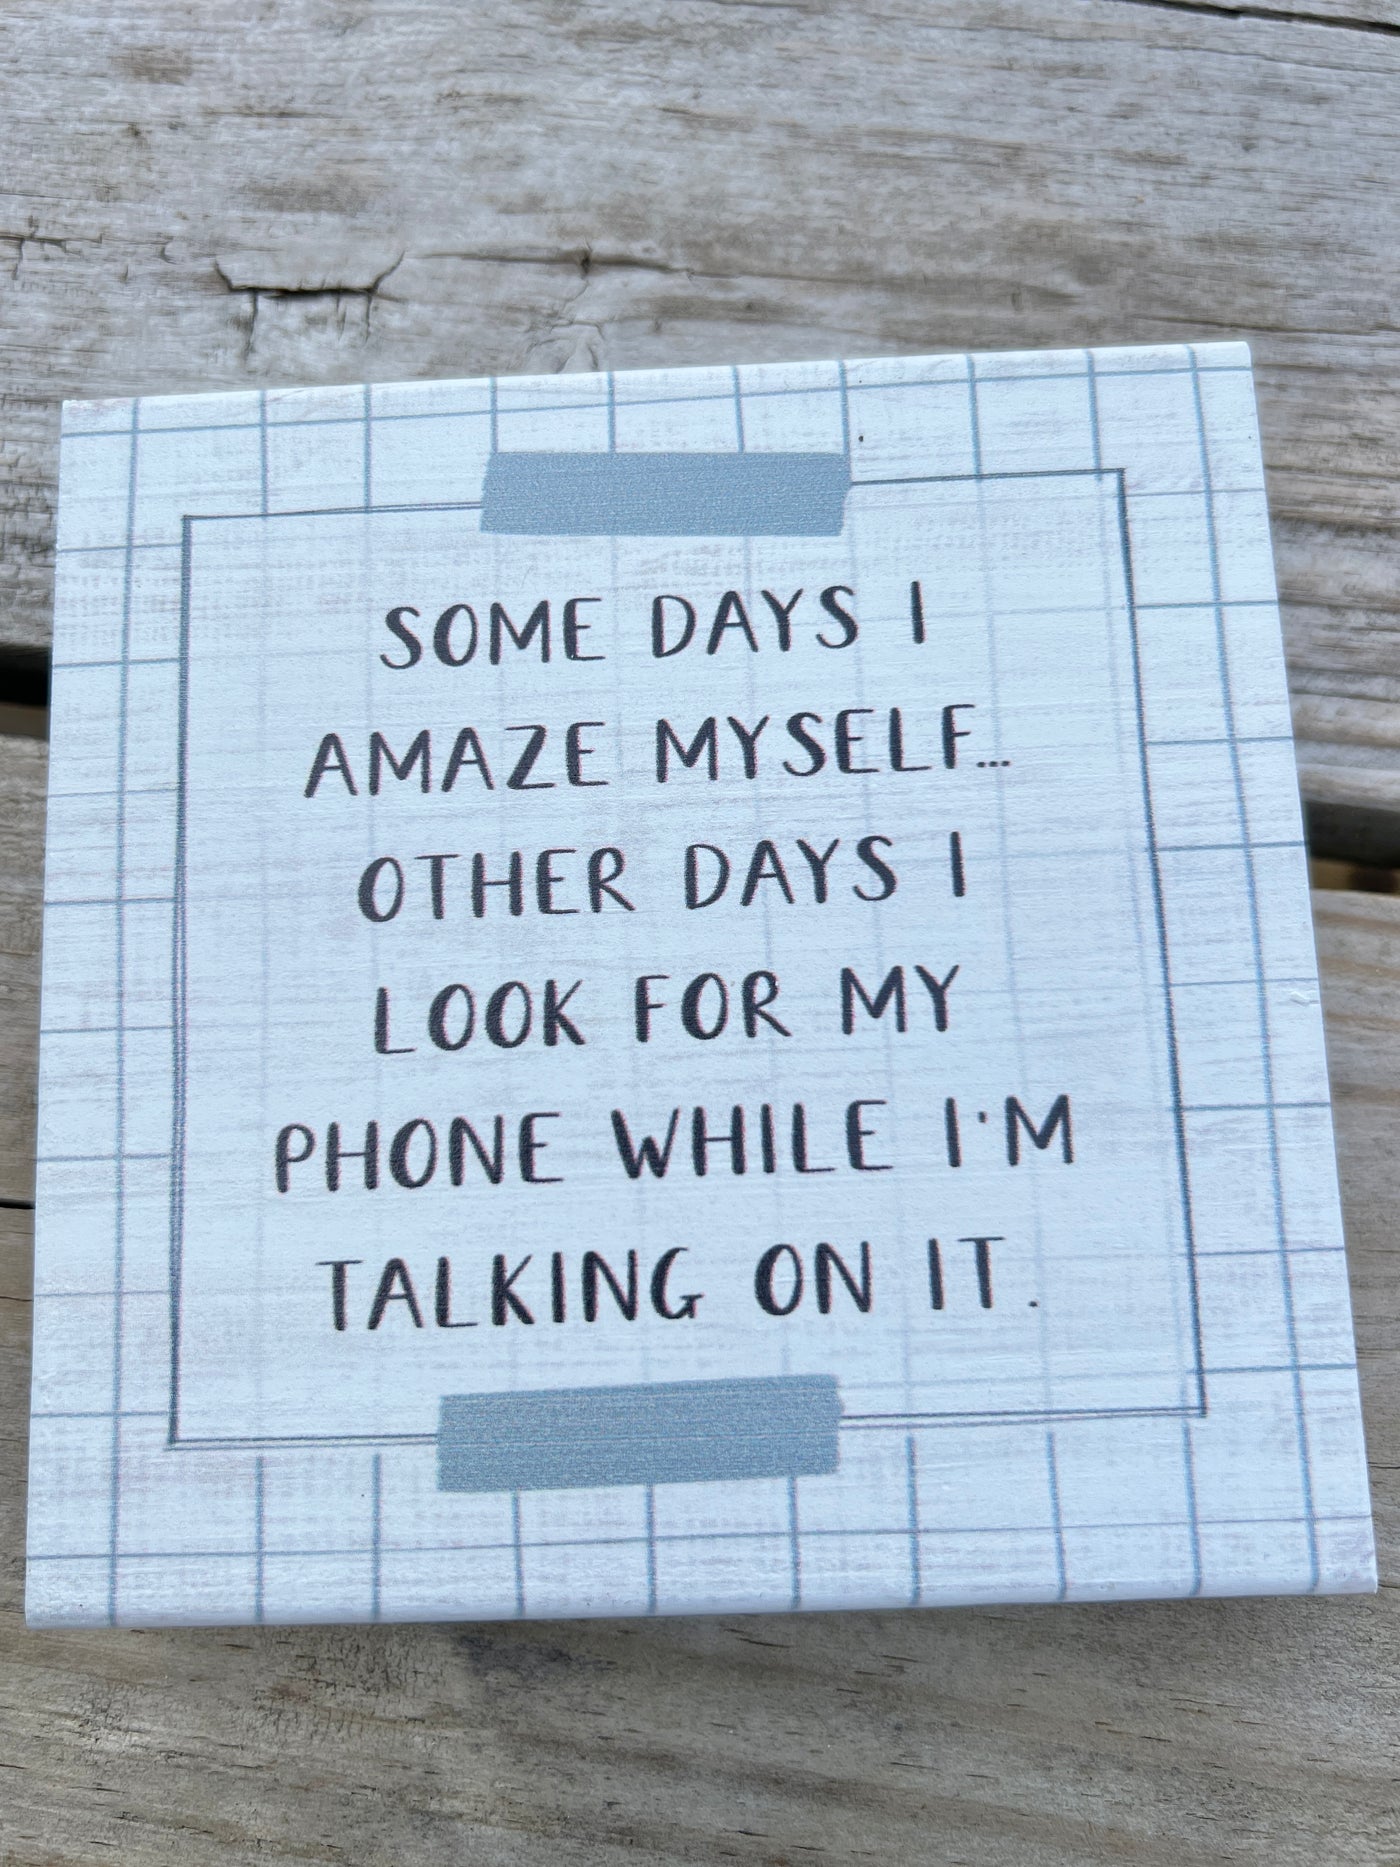 SOME DAYS I
AMAZE MYSELF...
OTHER DAYS I
LOOK FOR MY
PHONE WHILE I'M
TALKING ON IT.